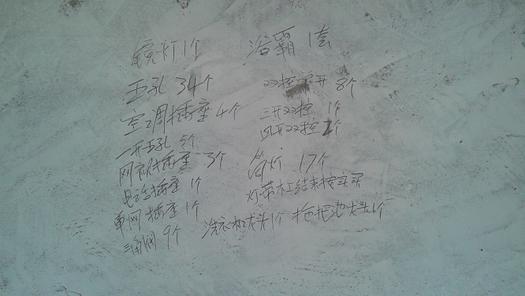 镜灯1个 浴霸1套
五孔34个 双控单开8个
空调插座4个 三开双控1个
一开五孔 个 四开双控2个
网视插座3个 筒灯17个
电话插座1个 灯带木工结束按实买
单网插座1个
三角阀9个 洗衣机龙头1个 拖把池龙头1个